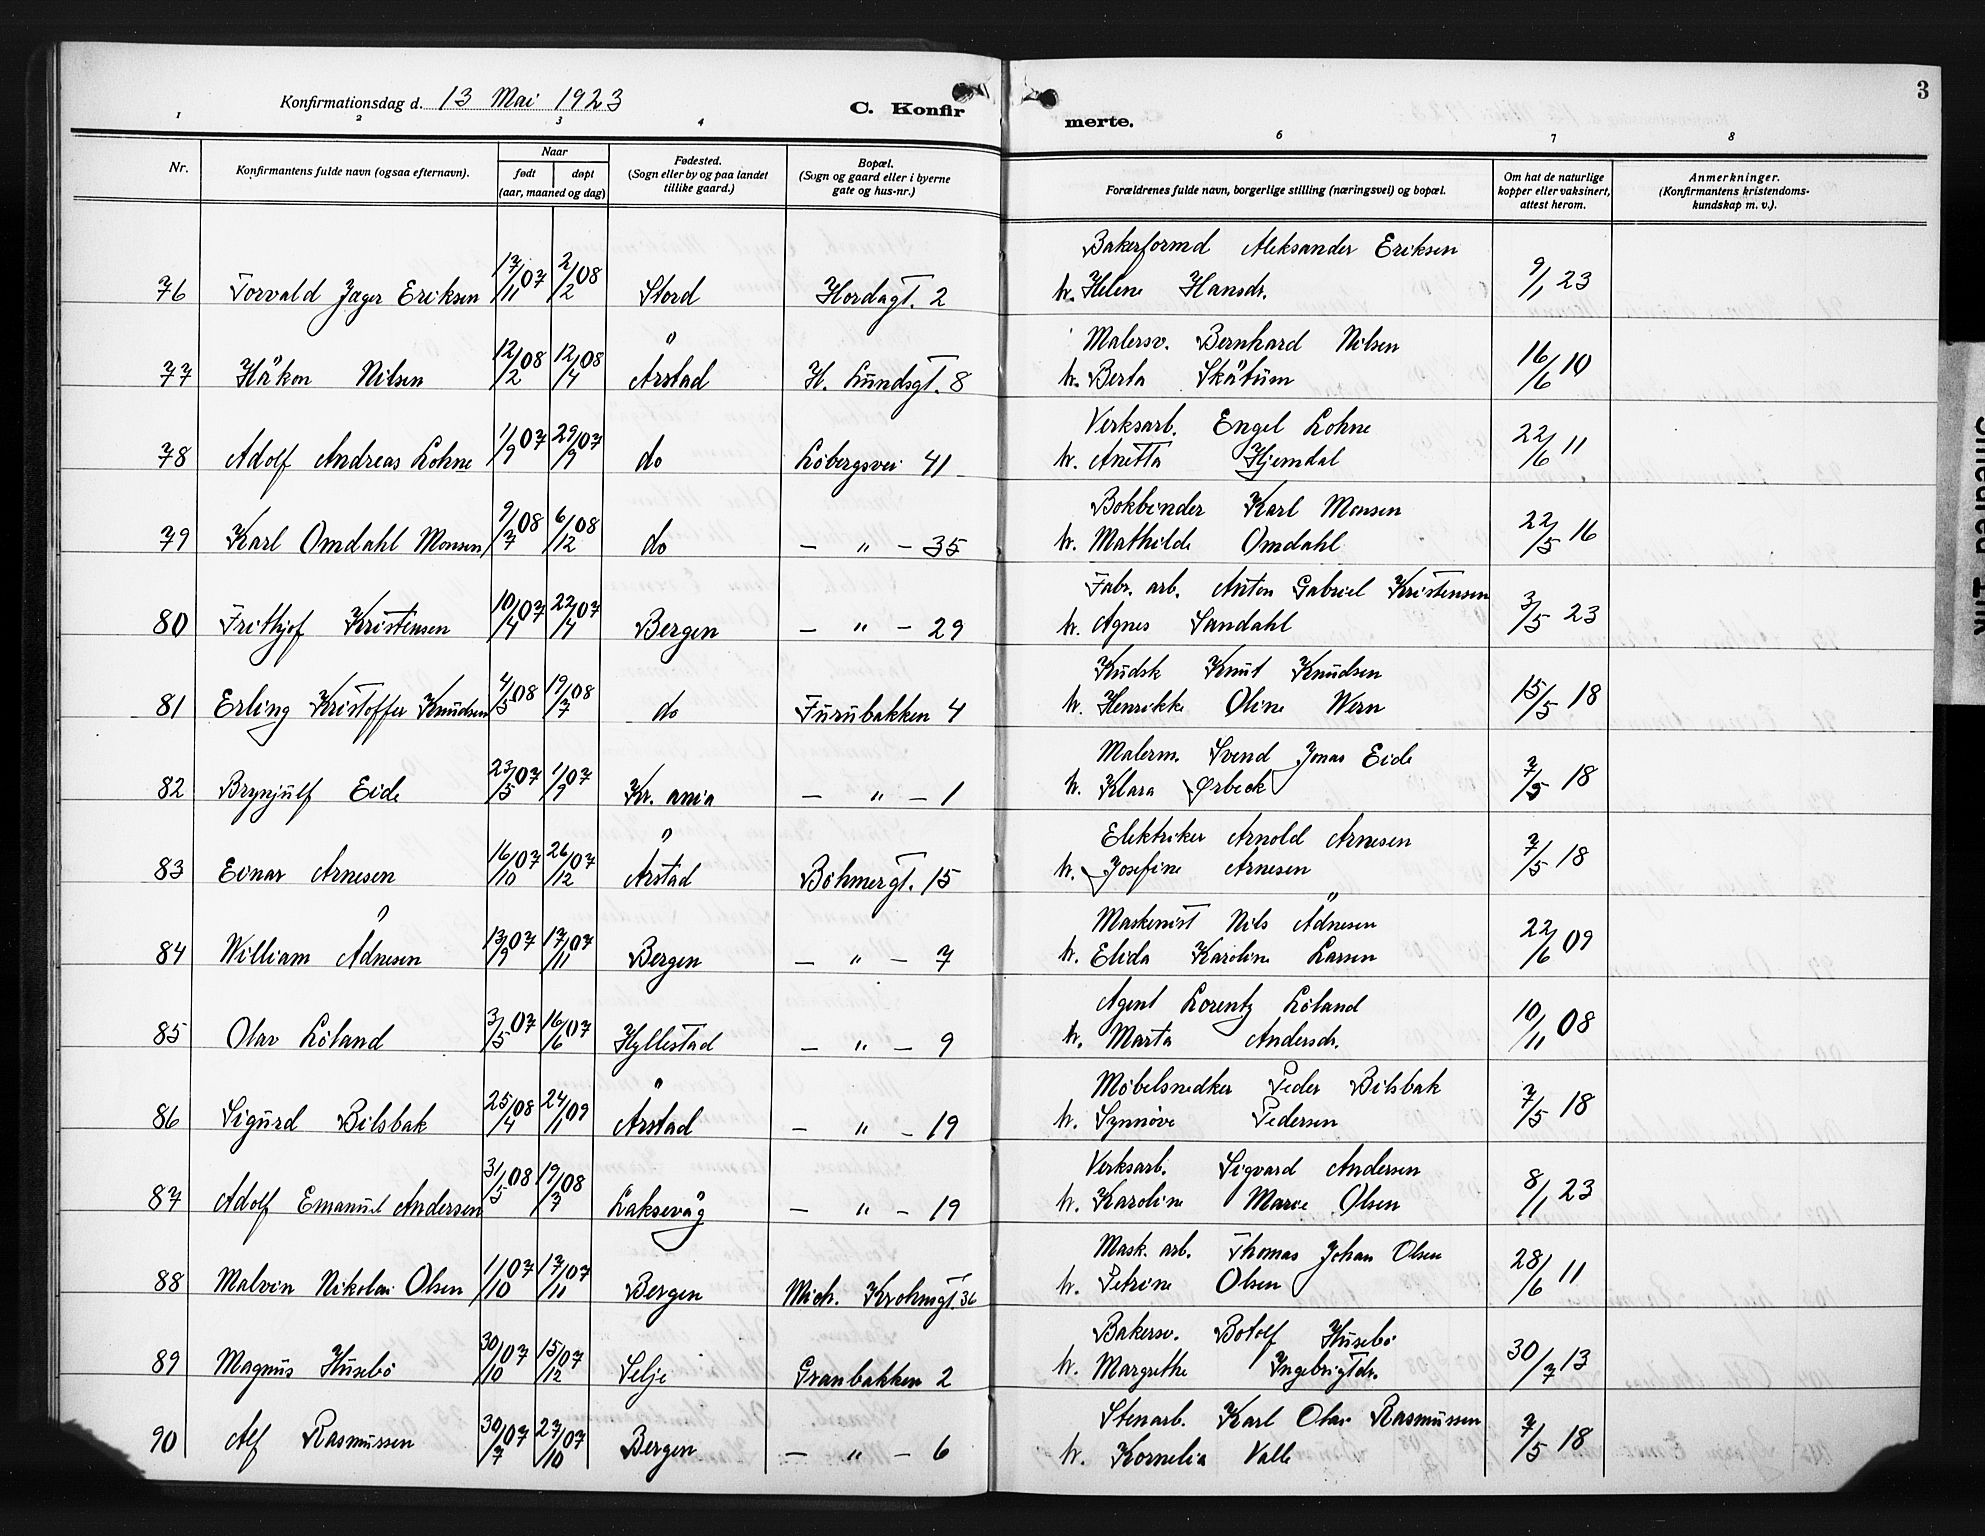 3
Konfirmationsdag d. 13 Mai 1923
C. Konfirmerte.
1 2 3 4 6 7 8
Nr. | Konfirmantens fulde navn (ogsaa efternavn). | Naar født døpt (aar, maaned og dag) | Fødested. (Sogn eller by og paa landet tillike gaard.) | Bopæl. (Sogn og gaard eller i byerne gate og hus-nr.) | Forældrenes fulde navn, borgerlige stilling (næringsvei) og bopæl. | Om hat de naturlige kopper eller vaksinert, attest herom. | Anmerkninger. (Konfirmantens kristendoms-kundskap m. v.).
76 Torvald Jager Eriksen 17/11 07 2/2 08 Stord Hordagt. 2 Bakerformd Aleksander Eriksen h. Helene Hansdr. 9/1 23
77 Håkon Nilsen 12/2 08 12/4 08 Årstad H. Lundsgt. 8 Malersv. Bernhard Nilsen h. Berta Skåtum 16/6 10
78 Adolf Andreas Lohne 1/9 07 29/9 07 do Løbergsvei 41 Verksarb. Engel Lohne h. Anetta Hjemdal 22/6 11
79 Karl Omdahl Monsen 9/7 08 6/12 08 do — " — 35 Bokbinder Karl Monsen h. Mathilde Omdahl 22/5 16
80 Frithjof Kristensen 10/4 07 22/4 07 Bergen — " — 29 Fabr. arb. Anton Gabriel Kristensen h. Agnes Sandahl 3/5 23
81 Erling Kristoffer Knudsen 4/5 08 19/7 08 do Furubakken 4 Kudsk Knut Knudsen h. Henrikke Oline Wern 15/5 18
82 Brynjulf Eide 23/5 07 1/9 07 Kr. ania — " — 1 Malerm. Svend Jonas Eide h. Klara Ørbeck 7/5 18
83 Einar Arnesen 16/10 07 26/12 07 Årstad Bøhmergt. 15 Elektriker Arnold Arnesen h. Josefine Arnesen 7/5 18
84 William Ådnesen 13/9 07 17/11 07 Bergen — " — 7 Maskenist Nils Ådnesen h. Elida Karoline Larsen 22/6 09
85 Olav Løland 3/5 07 16/6 07 Hyllestad — " — 9 Agent Lorentz Løland h. Marta Andersdr. 10/11 08
86 Sigurd Bilsbak 25/4 08 24/1 09 Årstad — " — 19 Møbelsnedker Peder Bilsbak h. Synnøve Pedersen 7/5 18
87 Adolf Emanuel Andersen 31/5 08 19/7 08 Laksevåg — " — 19 Verksarb. Sigvard Andersen h. Karoline Marie Olsen 8/1 23
88 Malvin Nikolai Olsen 1/10 07 17/11 07 Bergen Mich. Krohnsgt. 36 Mask. arb. Thomas Johan Olsen h. Petrine Olsen 28/6 11
89 Magnus Husebø 30/10 07 15/12 07 Selje Granbakken 2 Bakersv. Botolf Husebø h. Margrethe Ingebrigtdr. 30/7 13
90 Alf Rasmussen 30/7 07 27/10 07 Bergen — " — 6 Stenarb. Karl Olav Rasmussen h. Kornelia Valle 7/5 18